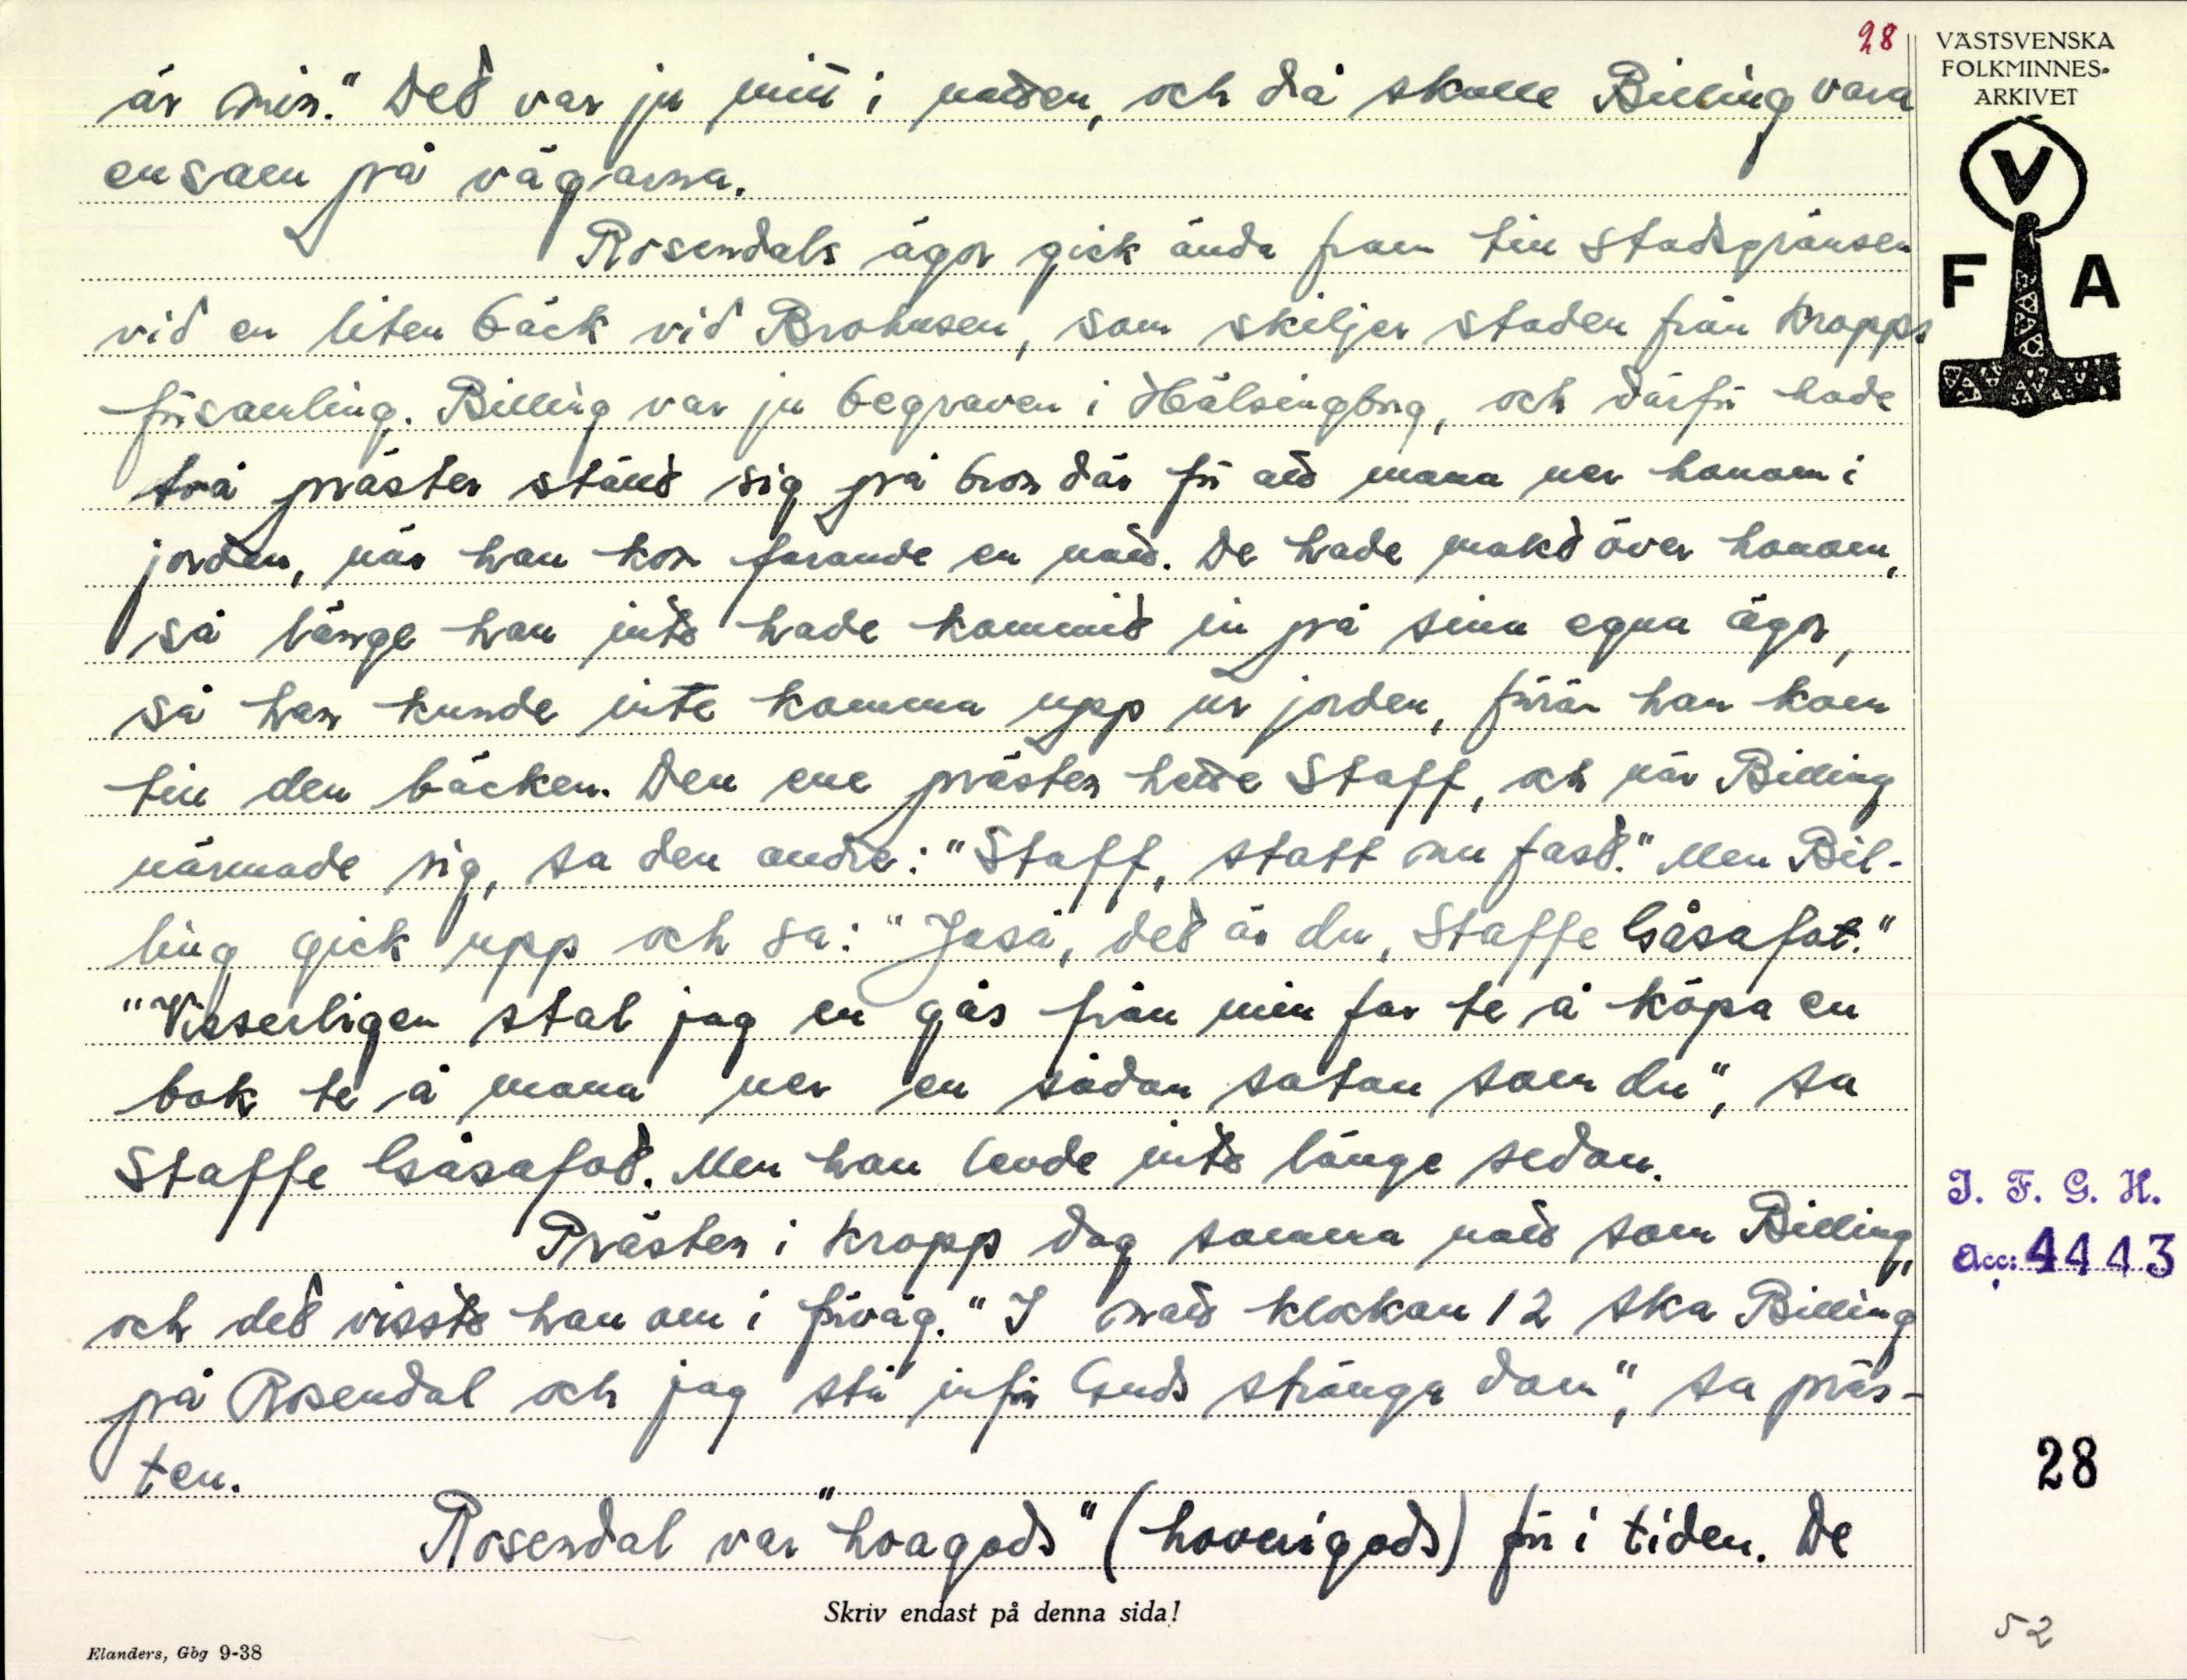 28
är min." Det var ju mitt i natten, och då skulle Billing vara
ensam på vägarna.
Rosendals ägor gick ända fram till stadsgränsen
vid en liten bäck vid Brohusen, som skiljer staden från Kropps
församling. Billing var ju begraven i Hälsingborg, och därför hade
två präster ställt sig på bron där för att mana ner honom i
jorden, när han kom farande en natt. De hade makt över honom,
så länge han inte hade kommit in på sina egna ägor,
så han kunde inte komma upp ur jorden, förrän han kom
till den bäcken. Den ene prästen hette Staff, och när Billing
närmade sig, sa den andre: "Staff, statt nu fast." Men Bil-
ling gick upp och sa: "Jaså, det är du, Staffe Gåsafot."
"Visserligen stal jag en gås från min far te å köpa en
bok te å mana ner en sådan satan som du", sa
Staffe Gåsafot. Men han levde inte länge sedan.
Prästen i Kropp dog samma natt som Billing,
och det visste han om i förväg. "I natt klockan 12 ska Billing
på Rosendal och jag stå inför Guds stränga dom", sa präs-
ten.
Rosendal var "hoagods" (hoverigods) för i tiden. De
Skriv endast på denna sida!
Elanders, Gbg 9-38
VÄSTSVENSKA
FOLKMINNES-
ARKIVET
V
F A
I. F. G. H.
Acc: 4443
28
52